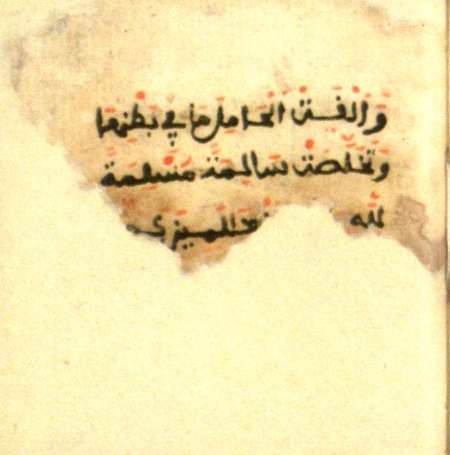 والقت الحامل ما في بطنها
وتخلصة سالمة مسلمة
لله